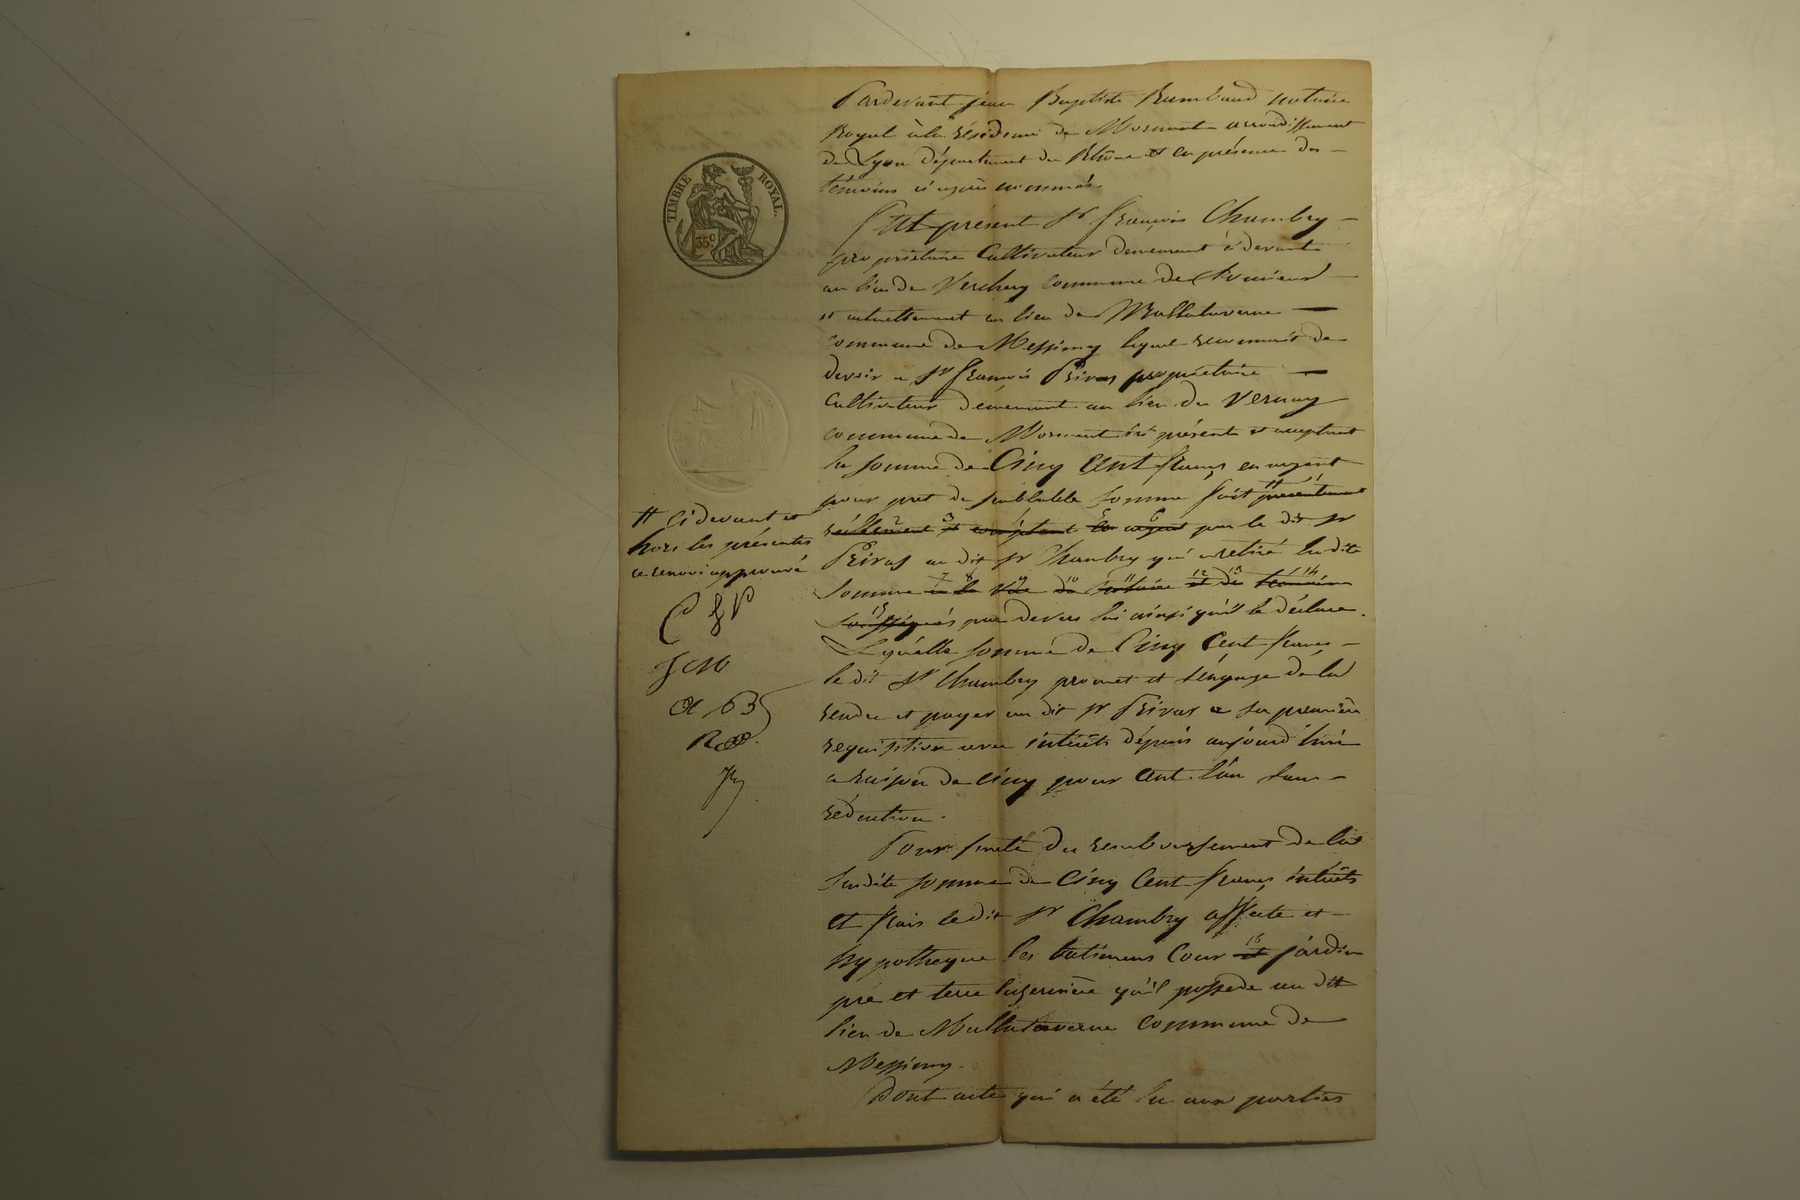 TIMBRE ROYAL.
35c
Pardevant jean Baptiste Rambaud notaire
Royal à la résidence de Mornant arrondissement
de Lyon département du Rhône et en présence des
témoins ci après nommés.
Fut présent Sr françois Chambry
propriétaire Cultivateur demeurant ci devant
au lieu de Verchery commune de
et actuellement au lieu de Mallataverne
commune de Messimy lequel reconnait de
devoir a Sr françois Privas propriétaire
Cultivateur demeurant au lieu du Vernay
commune de Mornant ici présent et acceptant
la somme de Cinq Cent francs en argent
pour pret de semblable somme fait # présentement
réellement 2 et 3 comptant 4 en 5 argent 6 par le dit Sr
Privas au dit Sr Chambry qui a retiré la dite
somme à 7 la 8 vue 9 du 10 notaire 11 et 12 des 13 témoins 14
soussignés 15 par devers lui ainsi qu'il le déclare.
Laquelle somme de Cinq Cent francs
le dit Sr Chambry promet et s'engage de la
rendre et payer au dit Sr Privas a sa première
requisition avec intérêts dépuis aujourd'hui
a raison de cinq pour cent l'an sans
réduction.
Pour sureté du remboursement de la
susdite somme de Cinq Cent francs intérêts
et frais le dit Sr Chambry affecte et
hypotheque les batimens Cour et 16 jardin
pré et terre luzernière qu'il possede au dit
lieu de Mallataverne commune de
Messimy.
Dont acte qui a été lu aux parties
# ci devant et
hors les présentes
ce renvoi approuvé
C f P